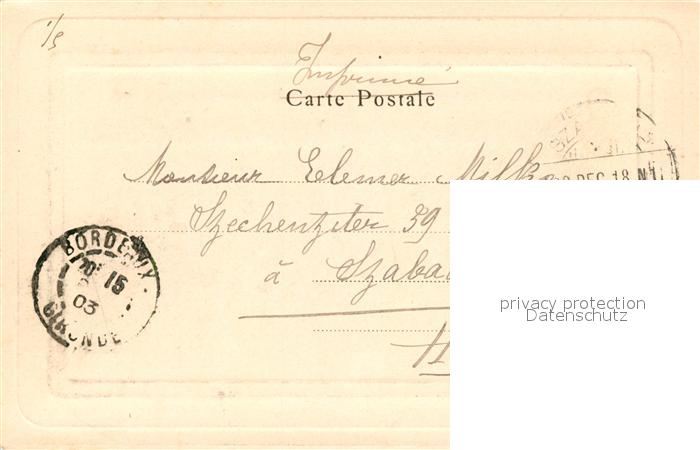 1/5
Imprimé
Carte Postale
Monsieur Elemer Milko
DEC. 18 N
Szechenyiter 39
à Szabad
H
BORDEAUX
15
03
GIRONDE
privacy protection
Datenschutz